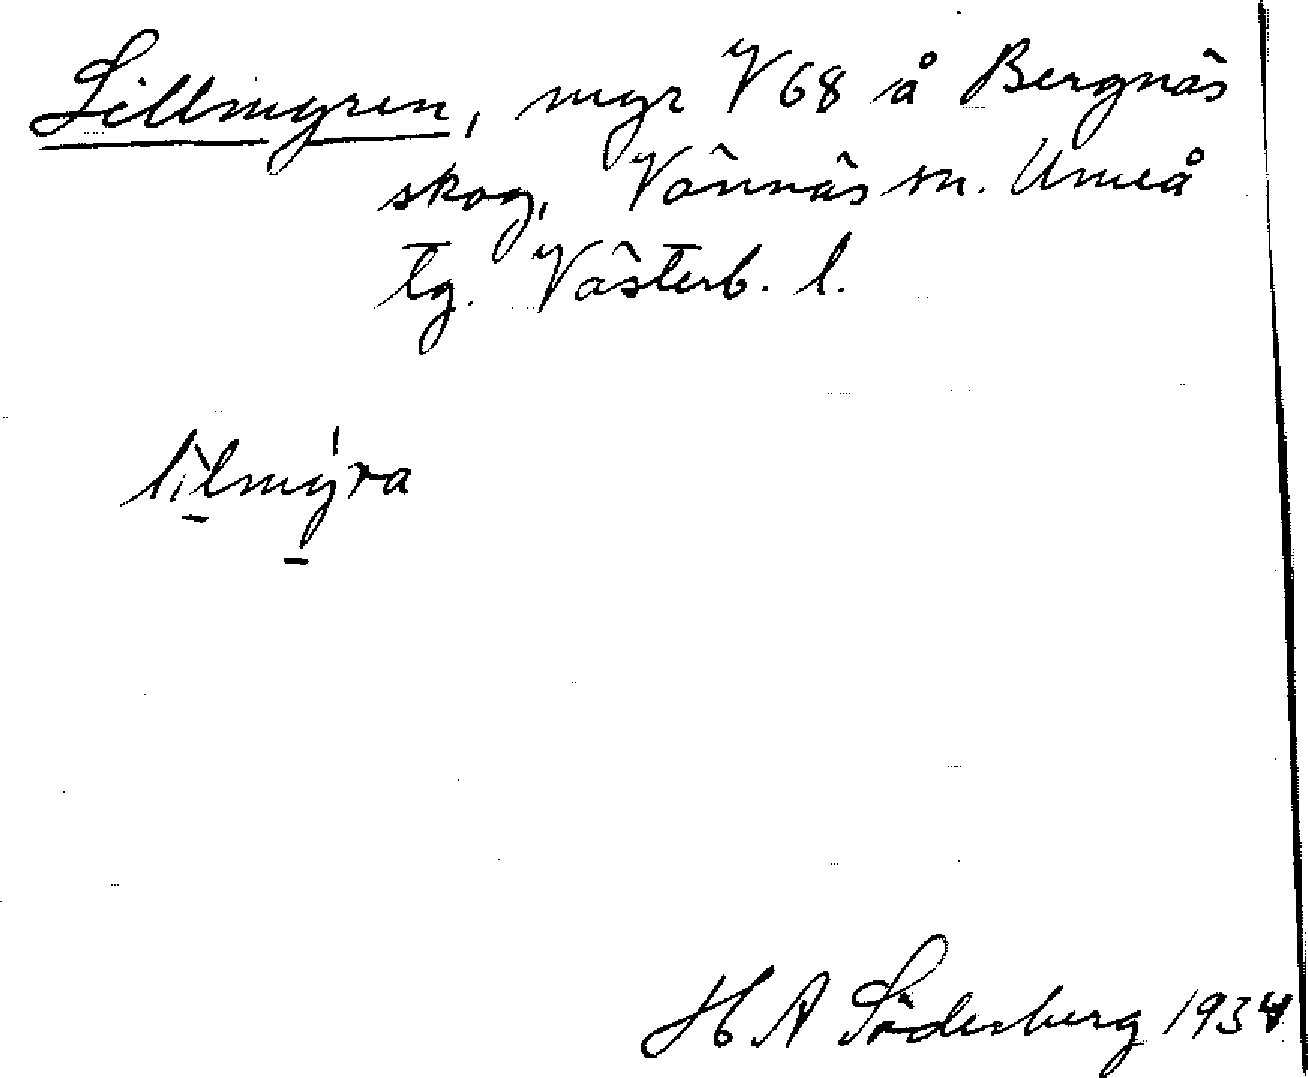 Lillmyren, myr V 68 å Bergnäs
skog, Vännäs sn. Umeå
tg. Västerb. l.
lìlmýra
H A Söderberg 1934